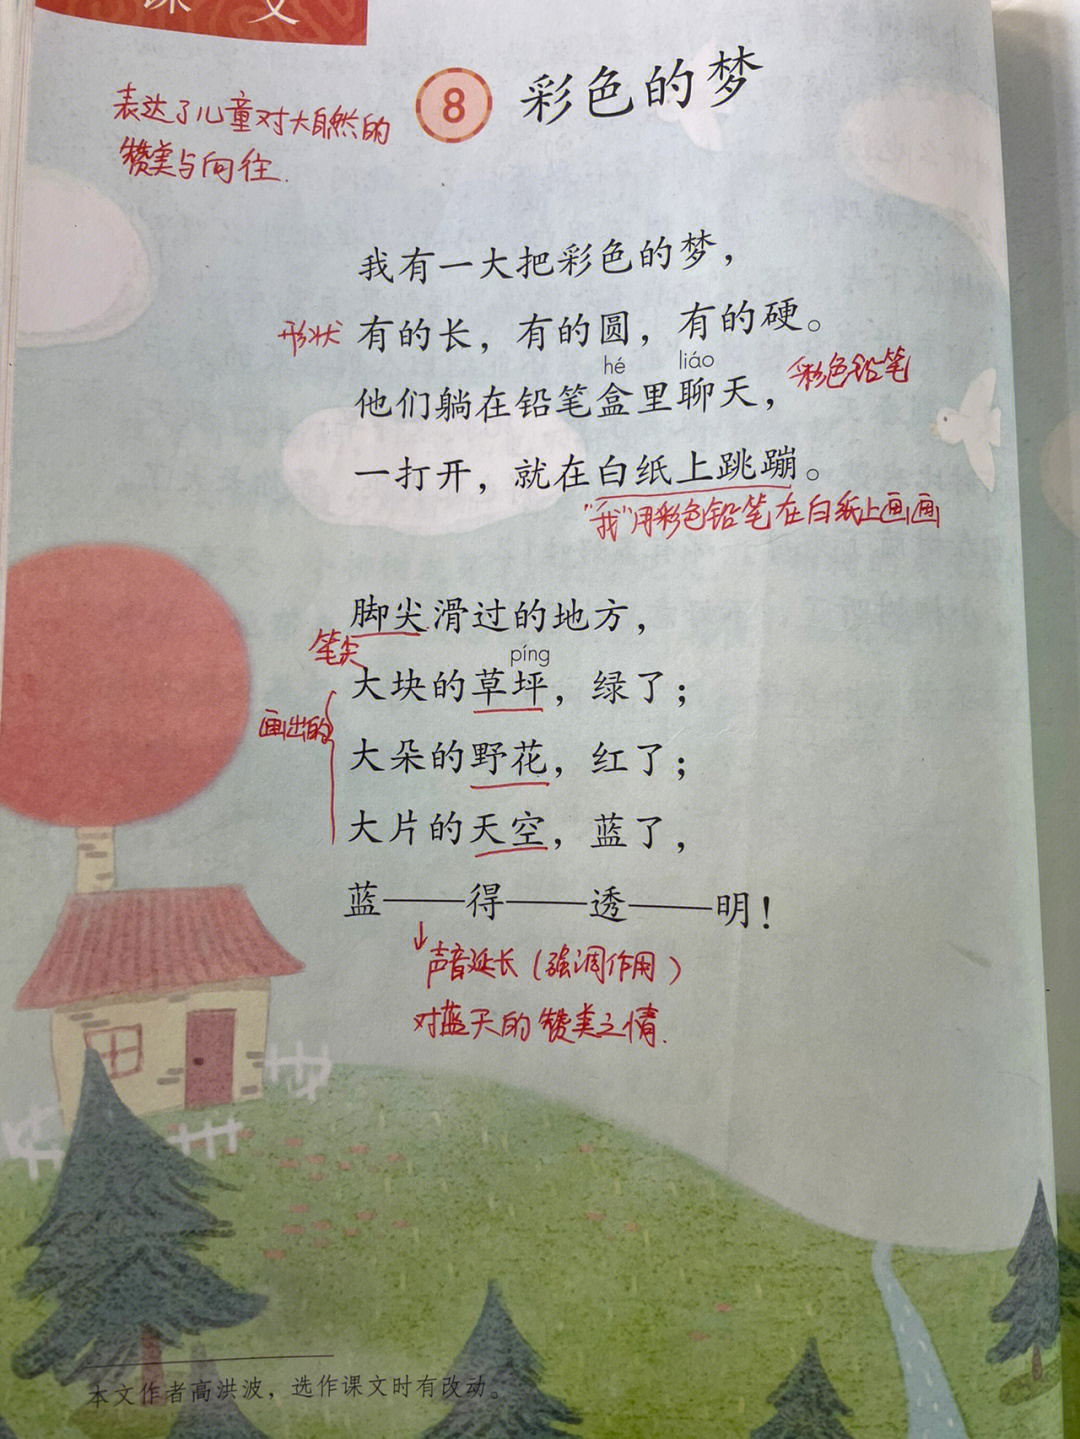 课 文
8 彩色的梦
表达了儿童对大自然的
赞美与向往.
我有一大把彩色的梦，
形状 有的长，有的圆，有的硬。
hé liáo
他们躺在铅笔盒里聊天， 彩色铅笔
一打开，就在白纸上跳蹦。
"我"用彩色铅笔在白纸上画画
脚尖滑过的地方，
笔尖
píng
大块的草坪，绿了；
画出的
大朵的野花，红了；
大片的天空，蓝了，
蓝——得——透——明！
↓声音延长（强调作用）
对蓝天的赞美之情.
本文作者高洪波，选作课文时有改动。